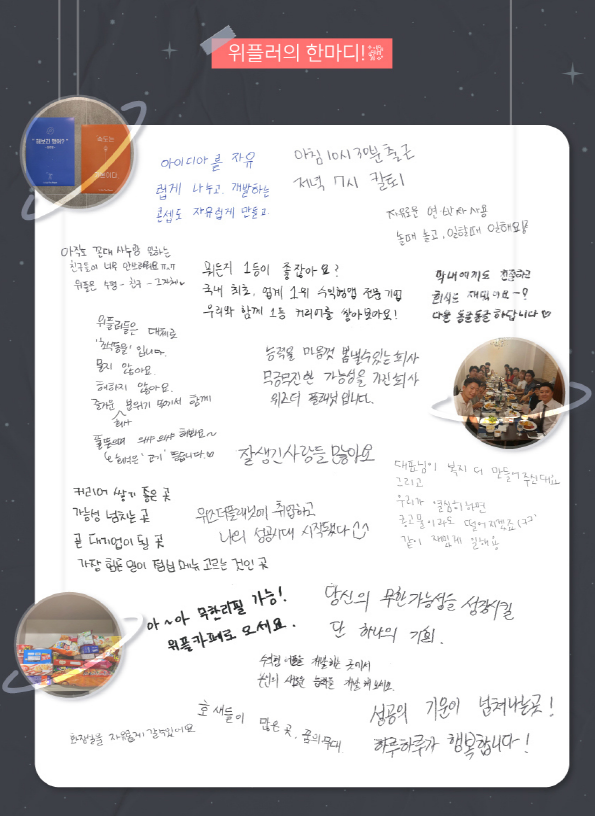 위플러의 한마디!
"해보긴 했어?"
아이디어를 자유
롭게 나누고, 개발하는
콘셉도 자유롭게 만들고
아침 10시 30분 출근
저녁 7시 칼퇴!
자유로운 연·반차 사용
놀때 놀고, 일할때 일해요
아직도 꼰대 사수랑 일하는
위플은 수평 - 친구 - 그 자체
뭐든지 1등이 좋잖아요?
국내 최초, 업계 1위 수익형앱 전문기업
우리와 함께 1등 커리어를 쌓아보아요!
막내에게도 친절하고
회사는 재밌네요~?
다들 둥글둥글 하답니다♡
위플러들은 대체로
입니다.
물지 않아요.
해치지 않아요.
즐거운 분위기 속에서 함께
회사
능력을 마음껏 뽐낼수있는 회사
무궁무진한 가능성을 가진회사
위즈더플래닛입니다.
잘생긴사람들 많아요
커리어 쌓기 좋은 곳
가능성 넘치는 곳
곧 대기업이 될 곳
가장 힘든 일이 점심메뉴 고르는 것인 곳
위즈더플래닛에 취업하고
나의 성공시대 시작됐다
대표님이 복지 더 만들어주신대요
그리고
우리가 열심히하면
콩고물이라도 떨어지겠죠(ㅋㅋ)
같이 재밌게 일해용
아~아 무한리필 가능!
위플카페로 오세요.
당신의 무한가능성을 성장시킬
단 하나의 기회.
많은 곳, 꿈의무대
성공의 기운이 넘쳐나는곳!
하루하루가 행복합니다!
화장실을 자유롭게 갈수있어요